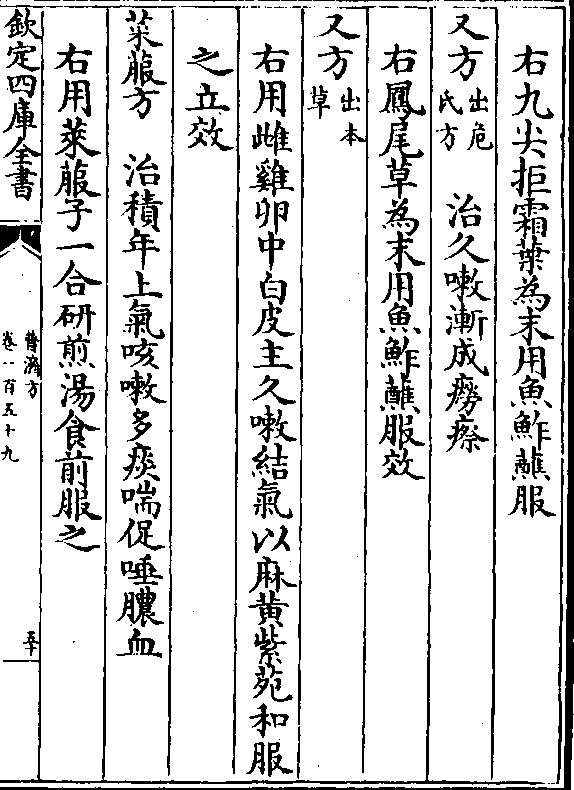 右九尖拒霜葉為末用魚鮓蘸服
又方出危氏方 治久嗽漸成癆瘵
右鳳尾草為末用魚鮓蘸服效
又方出本草
右用雌雞卵中白皮主久嗽結氣以麻黄紫苑和服
之立效
菜菔方 治積年上氣咳嗽多痰喘促唾膿血
右用萊菔子一合研煎湯食前服之
欽定四庫全書
普濟方
卷一百五十九
五十